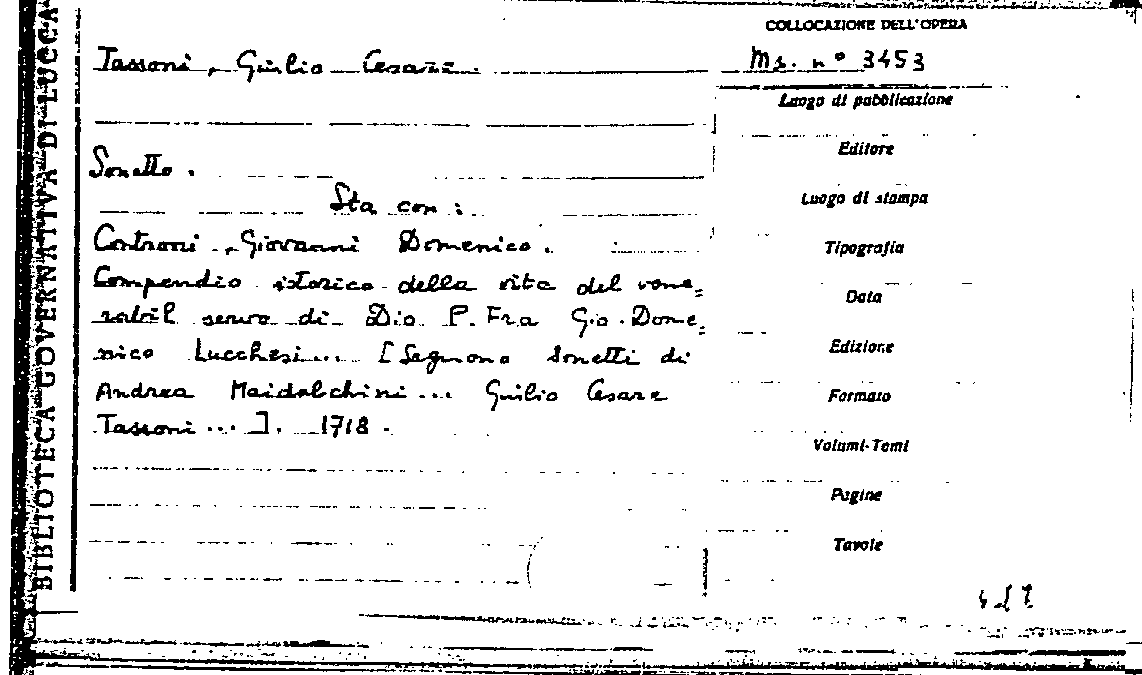 BIBLIOTECA GOVERNATIVA DI LUCCA
COLLOCAZIONE DELL'OPERA
Tassoni, Giulio Cesare.
Ms. n° 3453
Luogo di pubblicazione
Editore
Sonetto.
Luogo di stampa
Sta con:
Controni, Giovanni Domenico.
Tipografia
Compendio istorico della vita del vene=
Data
rabil servo di Dio P. Fra Gio. Dome=
nico Lucchesi... [Seguono sonetti di
Edizione
Andrea Maidalchini... Giulio Cesare
Formato
Tassoni...]. 1718.
Volumi-Tomi
Pagine
Tavole